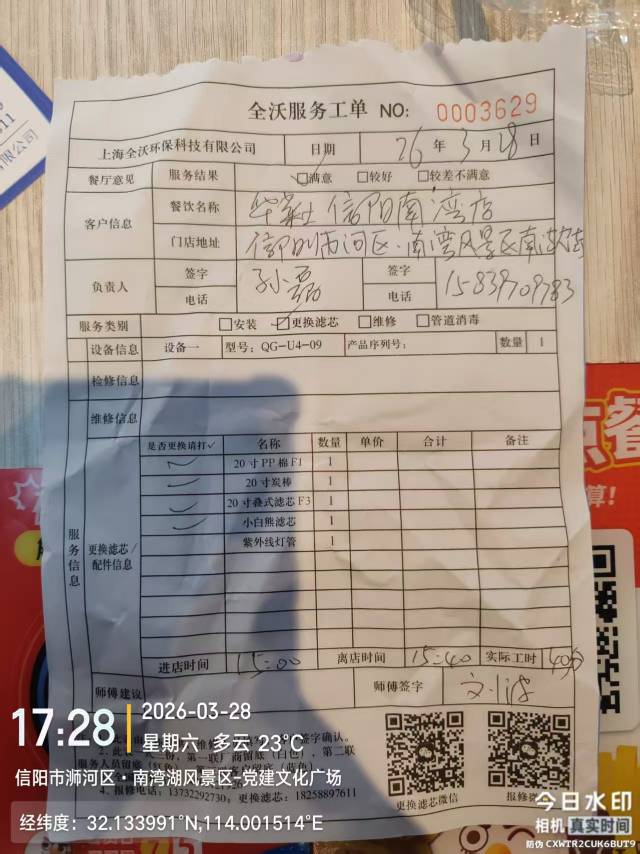 全沃服务工单 NO: 0003629
上海全沃环保科技有限公司 日期 26 年 3 月 28 日
餐厅意见 服务结果 满意 较好 较差不满意
客户信息 餐饮名称 华莱士信阳南湾店
门店地址
负责人 签字 孙磊 签字
电话 电话 15839709783
服务类别 安装 更换滤芯 维修 管道消毒
设备信息 设备一 型号: QG-U4-09 产品序列号: 数量 1
检修信息
维修信息
是否更换请打✓ 名称 数量 单价 合计 备注
20寸PP棉F1 1
20寸炭棒 1
20寸叠式滤芯F3 1
小白熊滤芯 1
紫外线灯管 1
服务信息
更换滤芯/
配件信息
进店时间 15:00 离店时间 15:40 实际工时 40分
师傅建议 师傅签字
17:28
2026-03-28
星期六 多云 23℃
信阳市浉河区·南湾湖风景区-党建文化广场
4、报修电话: 13732292730; 更换滤芯: 18258897611
更换滤芯微信 报修微
经纬度: 32.133991°N,114.001514°E
今日水印
相机 真实时间
防伪 CXWTR2CUK6BUT9